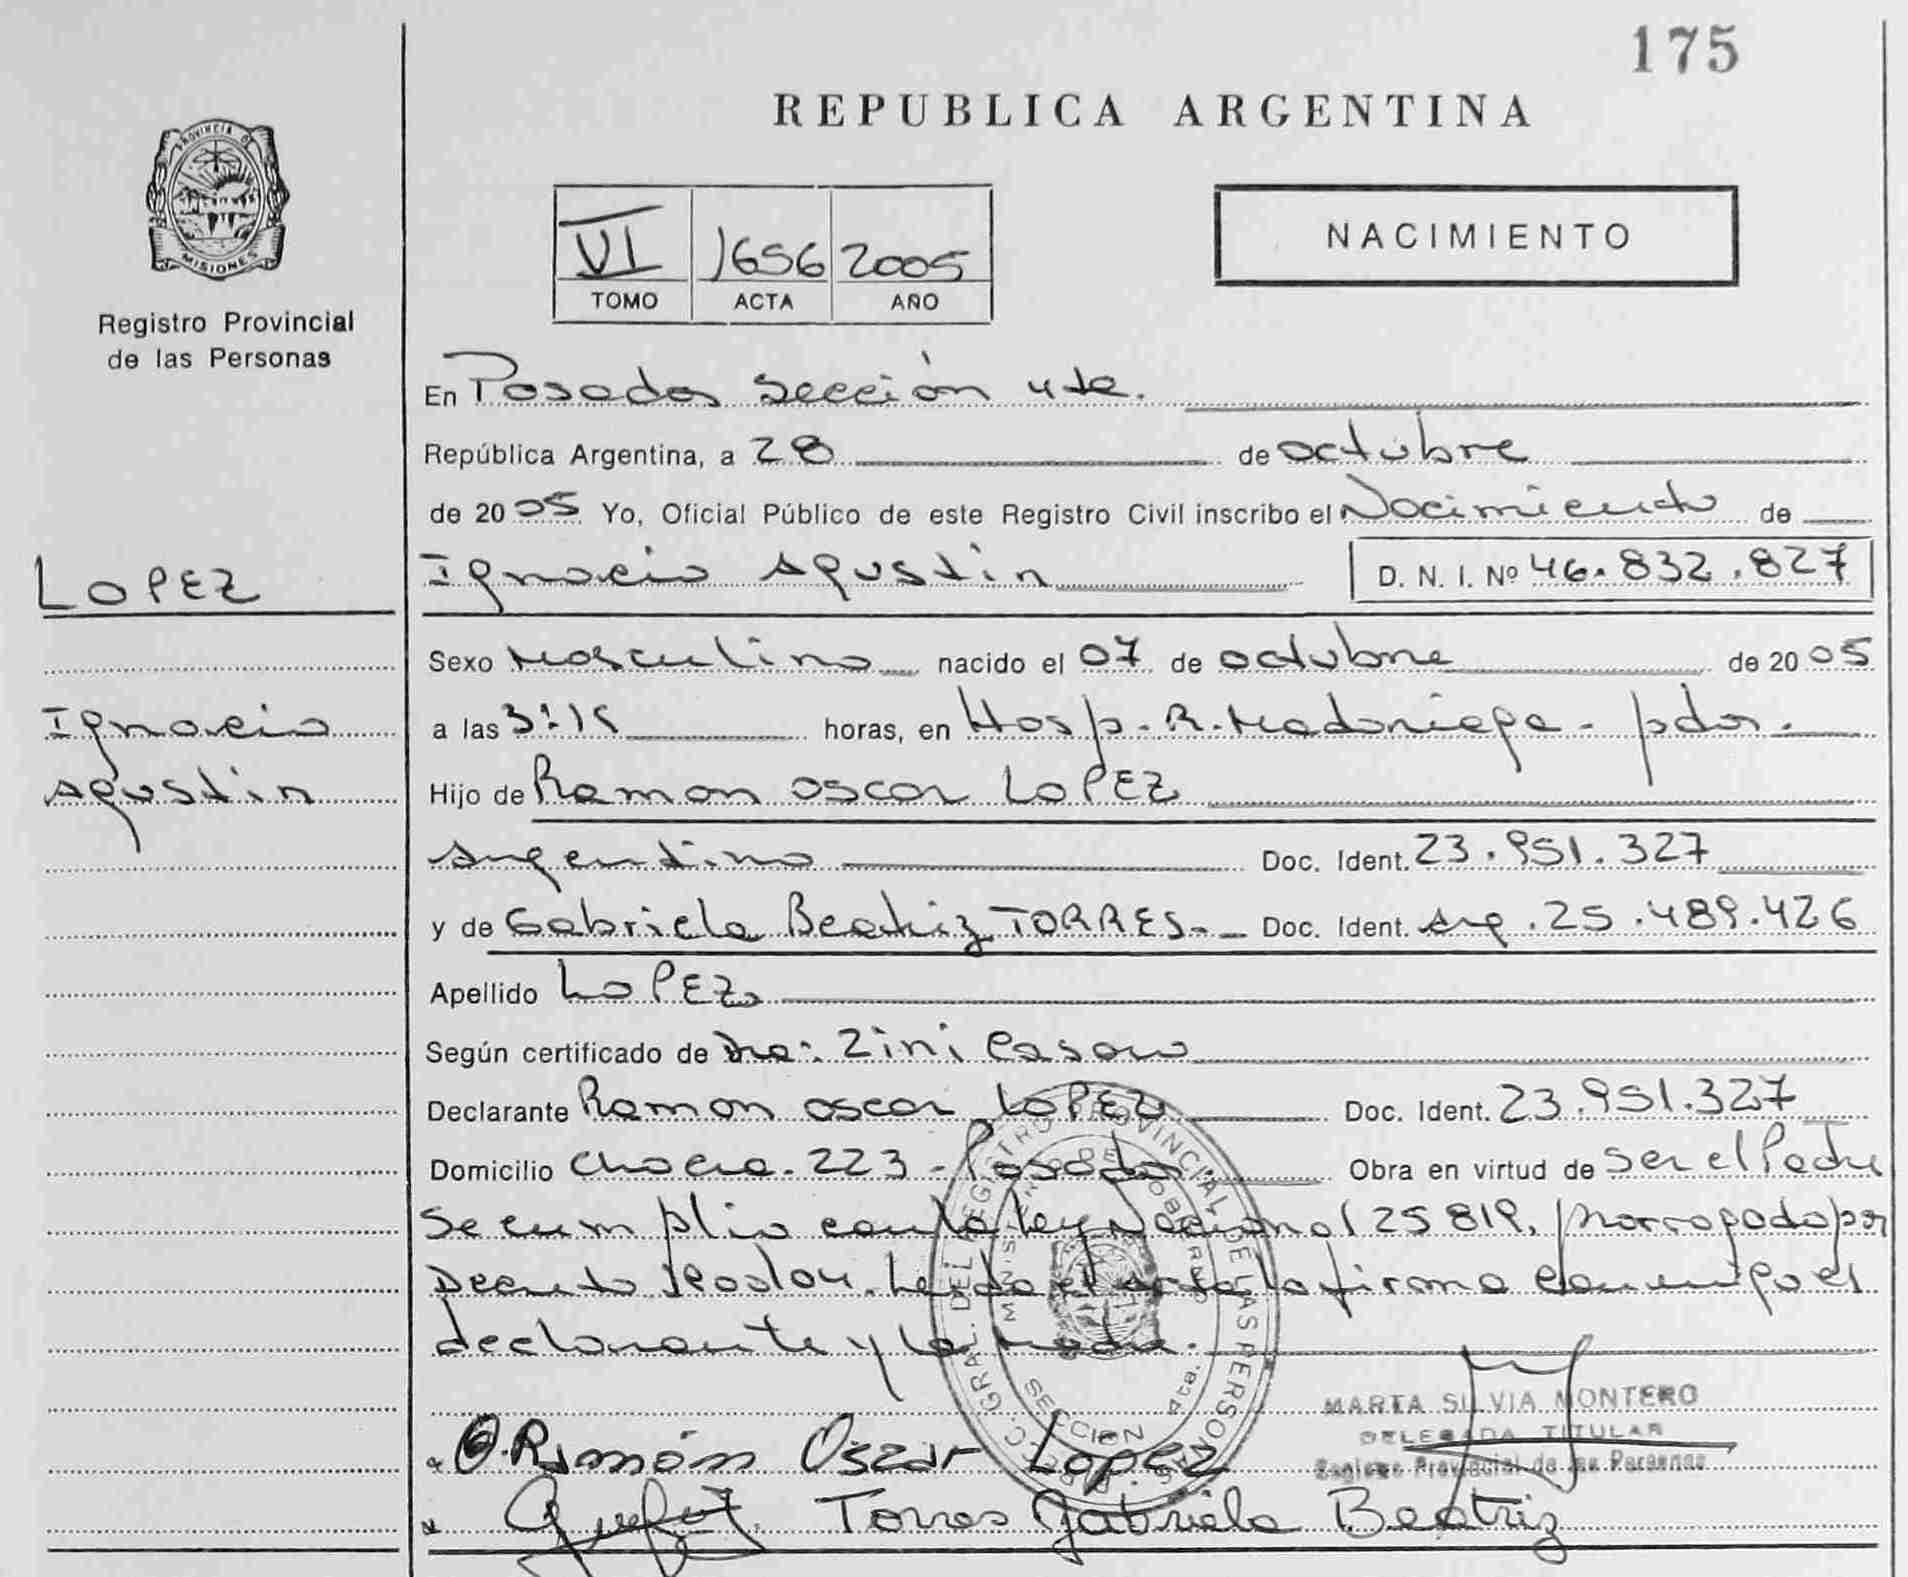 175
REPUBLICA ARGENTINA
PROVINCIA DE
MISIONES
Registro Provincial
de las Personas
VI 1656 2005
TOMO ACTA AÑO
NACIMIENTO
En Posadas sección 4ta.
República Argentina, a 28 de octubre
de 2005 Yo, Oficial Público de este Registro Civil inscribo el Nacimiento de
LOPEZ
Ignacio Agustin D. N. I. Nº 46.832.827
Sexo Masculino nacido el 07 de octubre de 2005
Ignacio
Agustin
a las 3:15 horas, en Hosp. R. Madariaga - pdas.
Hijo de Ramon oscar LOPEZ
Argentino Doc. Ident. 23.951.327
y de Gabriela Beatriz TORRES.- Doc. Ident. Arg. 25.489.426
Apellido LOPEZ
Según certificado de Dra: Zini
Declarante Ramon oscar LOPEZ Doc. Ident. 23.951.327
Domicilio 223 - Posadas. Obra en virtud de ser el Padre
Se cumplio con la ley Nacional 25819, prorrogado por
Decreto Leida el acta la firma conmigo el
declarante y la madre.
DIRECC. GRAL. DEL REGISTRO PROVINCIAL DE LAS PERSONAS
MINISTERIO DE GOBIERNO
SECCION 4ta.
MARTA SILVIA MONTERO
DELEGADA TITULAR
Registro Provincial de las Personas
Ramón Oscar Lopez
Torres Gabriela Beatriz